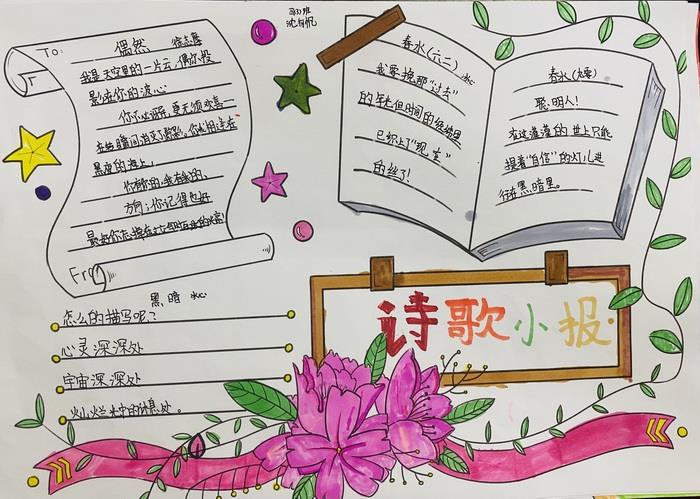 To:
偶然 徐志摩
我是天空里的一片云,偶尔投
影在你的波心
你不必讶异,更无须欢喜一
在转瞬间消灭了踪影。你我相逢在
黑夜的海上,
你有你的,我有我的,
方向;你记得也好
最好你忘掉在这交会时互放的光亮!
Fro
春水(六二)
我要挽那"过去"
的年光,但时间的经纬里
已织上了"现在"
的丝了!
春水(九零)
聪明人!
在这漠漠的世上只能
提着"自信"的灯儿进
行在黑暗里。
黑暗
怎么的描写呢?
心灵深深处
宇宙深深处
灿烂光中的休息处。
诗歌小报